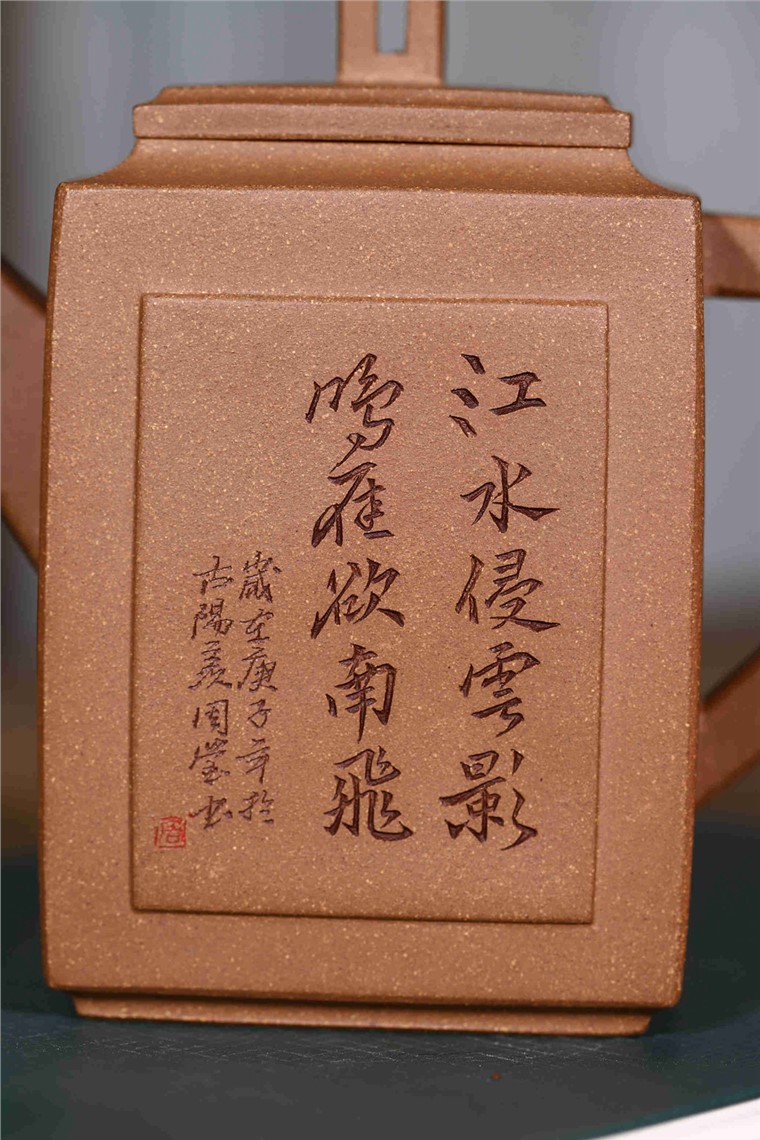 江水侵雲影
鳴雁欲南飛
歲在庚子年於
古陽羨周瑩书